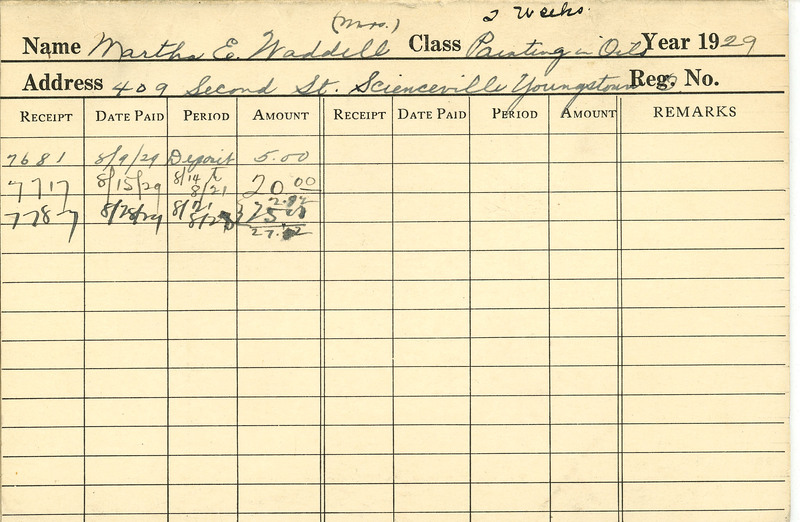 (Mrs.) 2 Weeks.
Name Martha E. Waddell Class Painting in Oils Year 1929
Address 409 Second St. Scienceville Youngstown O Reg. No.
RECEIPT DATE PAID PERIOD AMOUNT RECEIPT DATE PAID PERIOD AMOUNT REMARKS
7681 8/9/29 Deposit 5.00
7717 8/15/29 8/14 to 8/21 20.00
7787 8/28/29 8/21